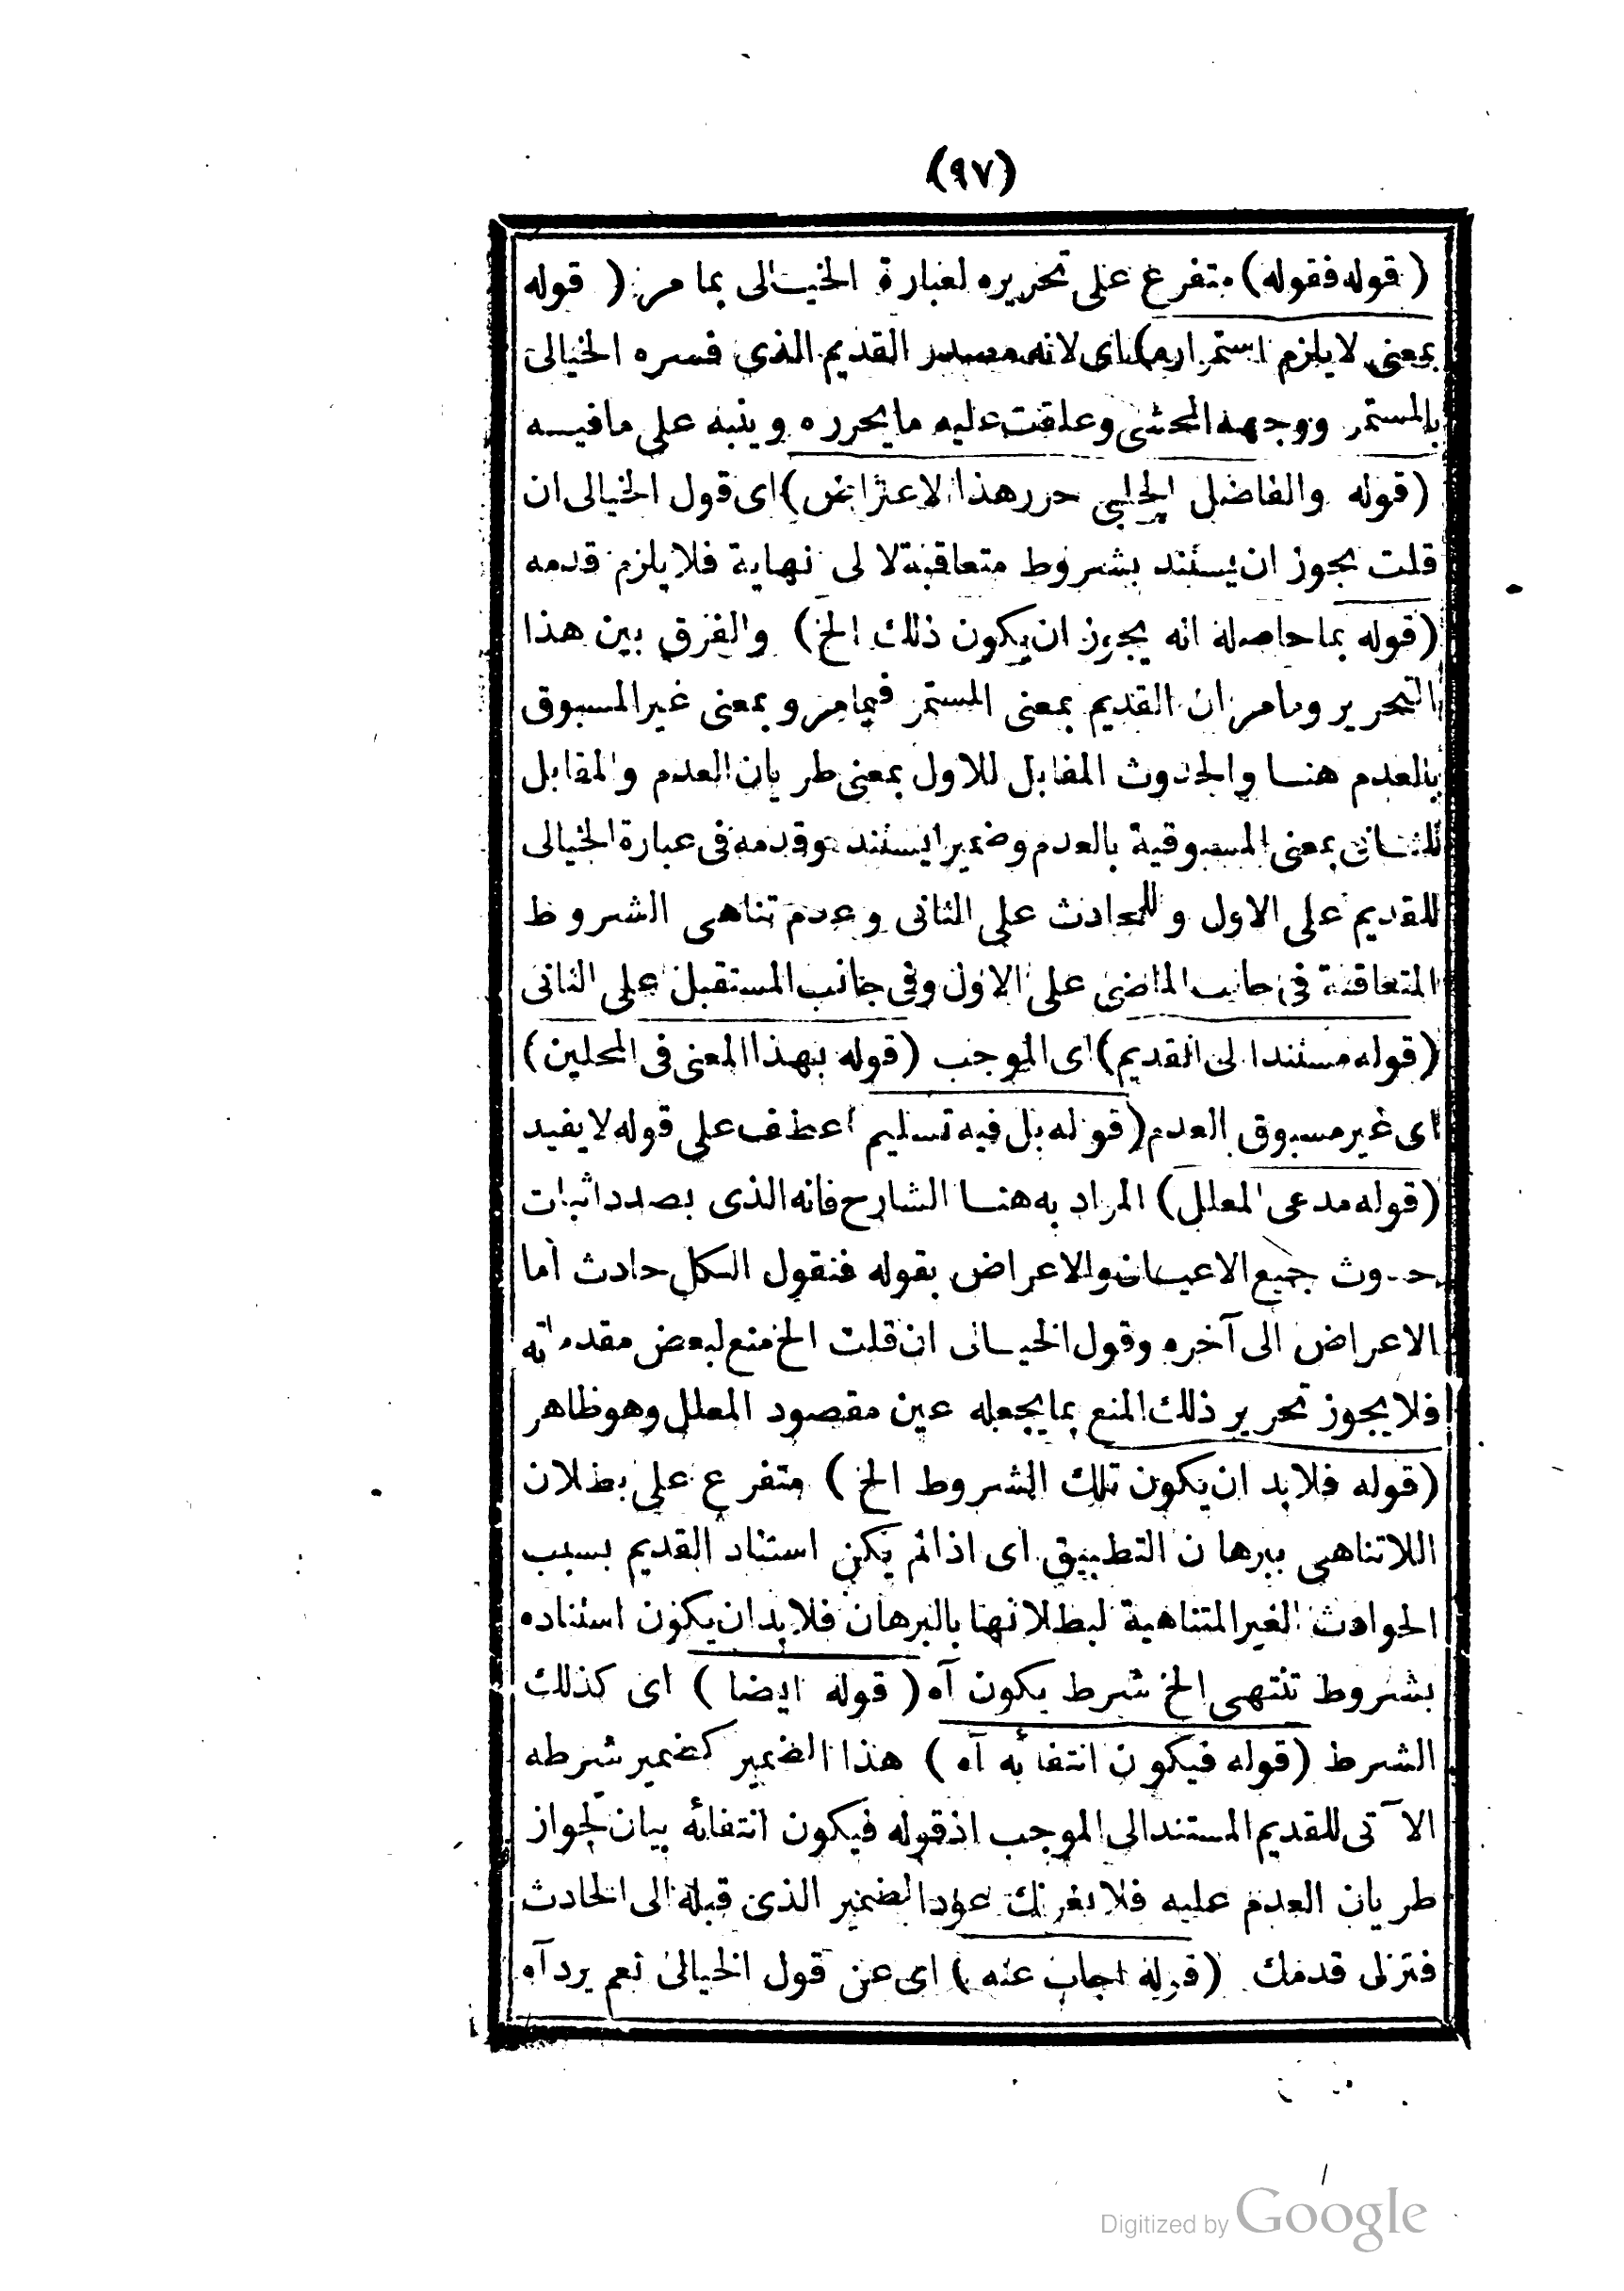 (٩٧)
(قوله فقوله) متفرغ على تحريره لعبارة الخيالى بما مر (قوله
بمعنى لا يلزم استمراره) اى لانه القديم الذى فسره الخيالى
بالمستمر ووجهه المحشى وعلقت عليه ما يحرره وينبه على ما فيه
(قوله والفاضل الجلبى حرر هذا الاعتراض) اى قول الخيالى ان
قلت يجوز ان يستند بشروط متعاقبة لا لى نهاية فلا يلزم قدمه
(قوله بما حاصله انه يجوز ان يكون ذلك الخ) والفرق بين هذا
التحرير وما مر ان القديم بمعنى المستمر فيما مر وبمعنى غير المسبوق
بالعدم هنا والحدوث المقابل للاول بمعنى طريان العدم والمقابل
للثانى بمعنى المسبوقية بالعدم وضميرا يستند وقدمه فى عبارة الخيالى
للقديم على الاول وللحادث على الثانى وعدم تناهى الشروط
المتعاقبة فى جانب الماضى على الاول وفى جانب المستقبل على الثانى
(قوله مستندا لى القديم) اى الموجب (قوله بهذا المعنى فى المحلين)
اى غير مسبوق العدم (قوله بل فيه تسليم ا عطف على قوله لا يفيد
(قوله مدعى المعلل) المراد به هنا الشارح فانه الذى بصدد اثبات
حدوث جميع الاعيان والاعراض بقوله فنقول الكل حادث أما
الاعراض الى آخره وقول الخيالى ان قلت الخ منع لبعض مقدماته
فلا يجوز تحرير ذلك المنع بما يجعله عين مقصود المعلل وهو ظاهر
(قوله فلا بد ان يكون تلك الشروط الخ) متفرع على بطلان
اللاتناهى ببرهان التطبيق اى اذا لم يكن استناد القديم بسبب
الحوادث الغير المتناهية لبطلانها بالبرهان فلا بد ان يكون استناده
بشروط تنتهى الخ شرط يكون آه (قوله ايضا) اى كذلك
الشرط (قوله فيكون انتفائه آه) هذا الضمير كضمير شرطه
الآتى للقديم المستند الى الموجب اذ قوله فيكون انتفائه بيان لجواز
طريان العدم عليه فلا يغرنك عود الضمير الذى قبله الى الحادث
فتزلى قدمك (قوله اجاب عنه) اى عن قول الخيالى نعم يرد آه
Digitized by Google